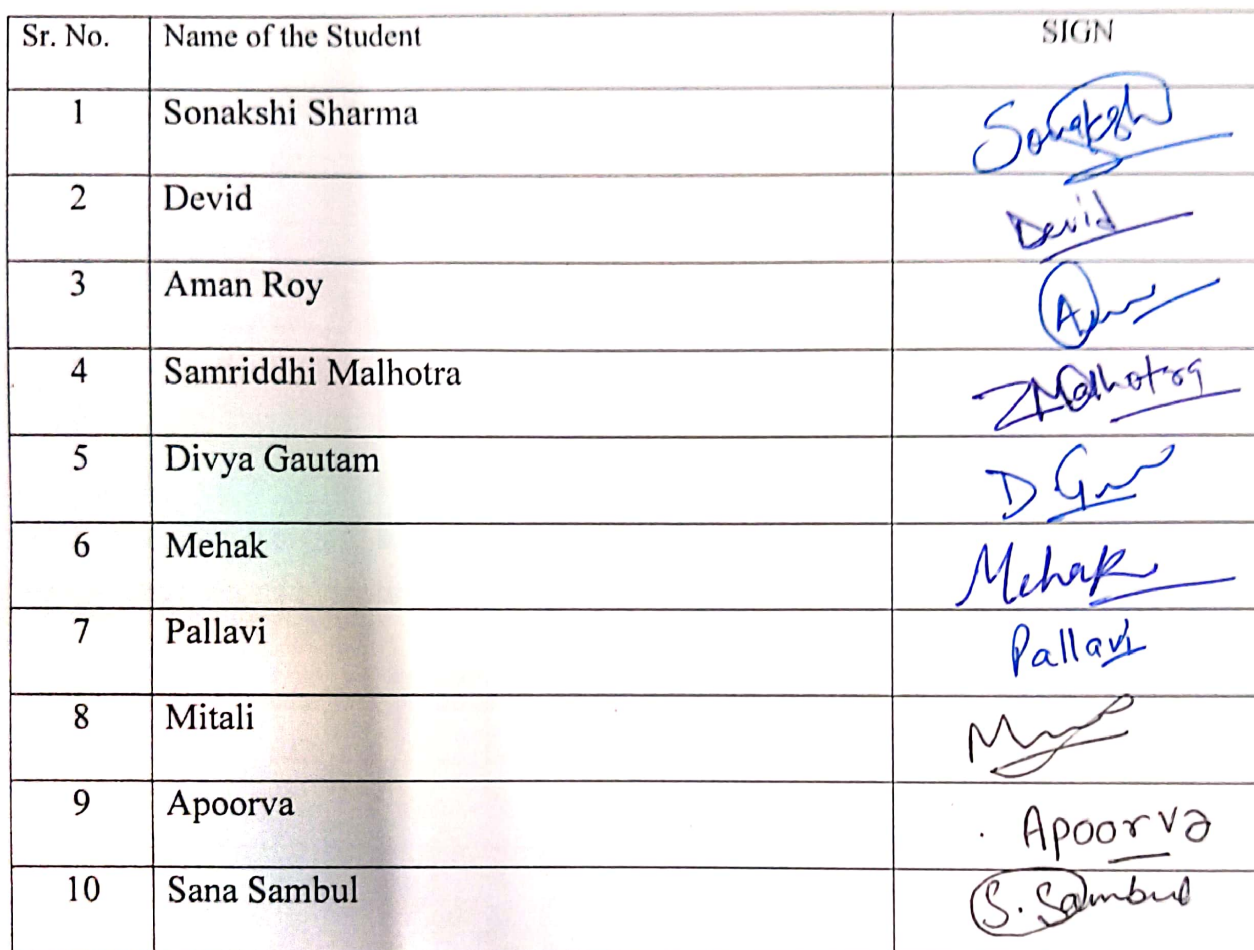 Sr. No. Name of the Student SIGN
1 Sonakshi Sharma Sonakshi
2 Devid Devid
3 Aman Roy
4 Samriddhi Malhotra Malhotra
5 Divya Gautam D
6 Mehak Mehak
7 Pallavi Pallavi
8 Mitali
9 Apoorva Apoorva
10 Sana Sambul S. Sambul